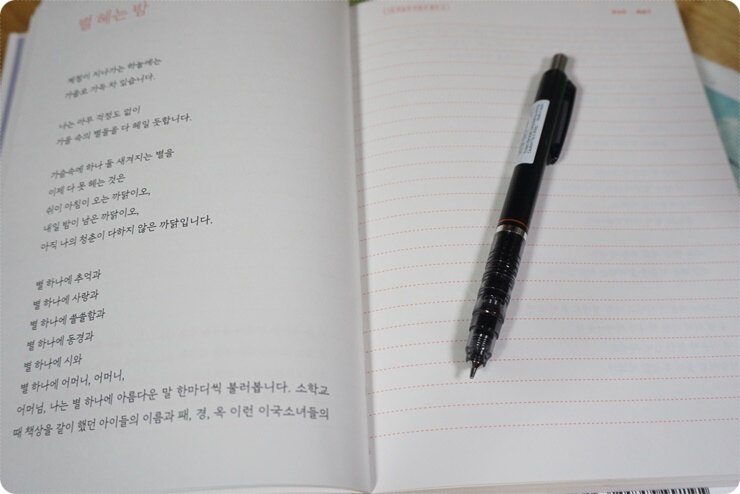 별 헤는 밤
계절이 지나가는 하늘에는
가을로 가득 차 있습니다.
나는 아무 걱정도 없이
가을 속의 별들을 다 헤일 듯합니다.
가슴속에 하나 둘 새겨지는 별을
이제 다 못 헤는 것은
쉬이 아침이 오는 까닭이오,
내일 밤이 남은 까닭이오,
아직 나의 청춘이 다하지 않은 까닭입니다.
별 하나에 추억과
별 하나에 사랑과
별 하나에 쓸쓸함과
별 하나에 동경과
별 하나에 시와
별 하나에 어머니, 어머니,
어머님, 나는 별 하나에 아름다운 말 한마디씩 불러봅니다. 소학교
때 책상을 같이 했던 아이들의 이름과 패, 경, 옥 이런 이국소녀들의